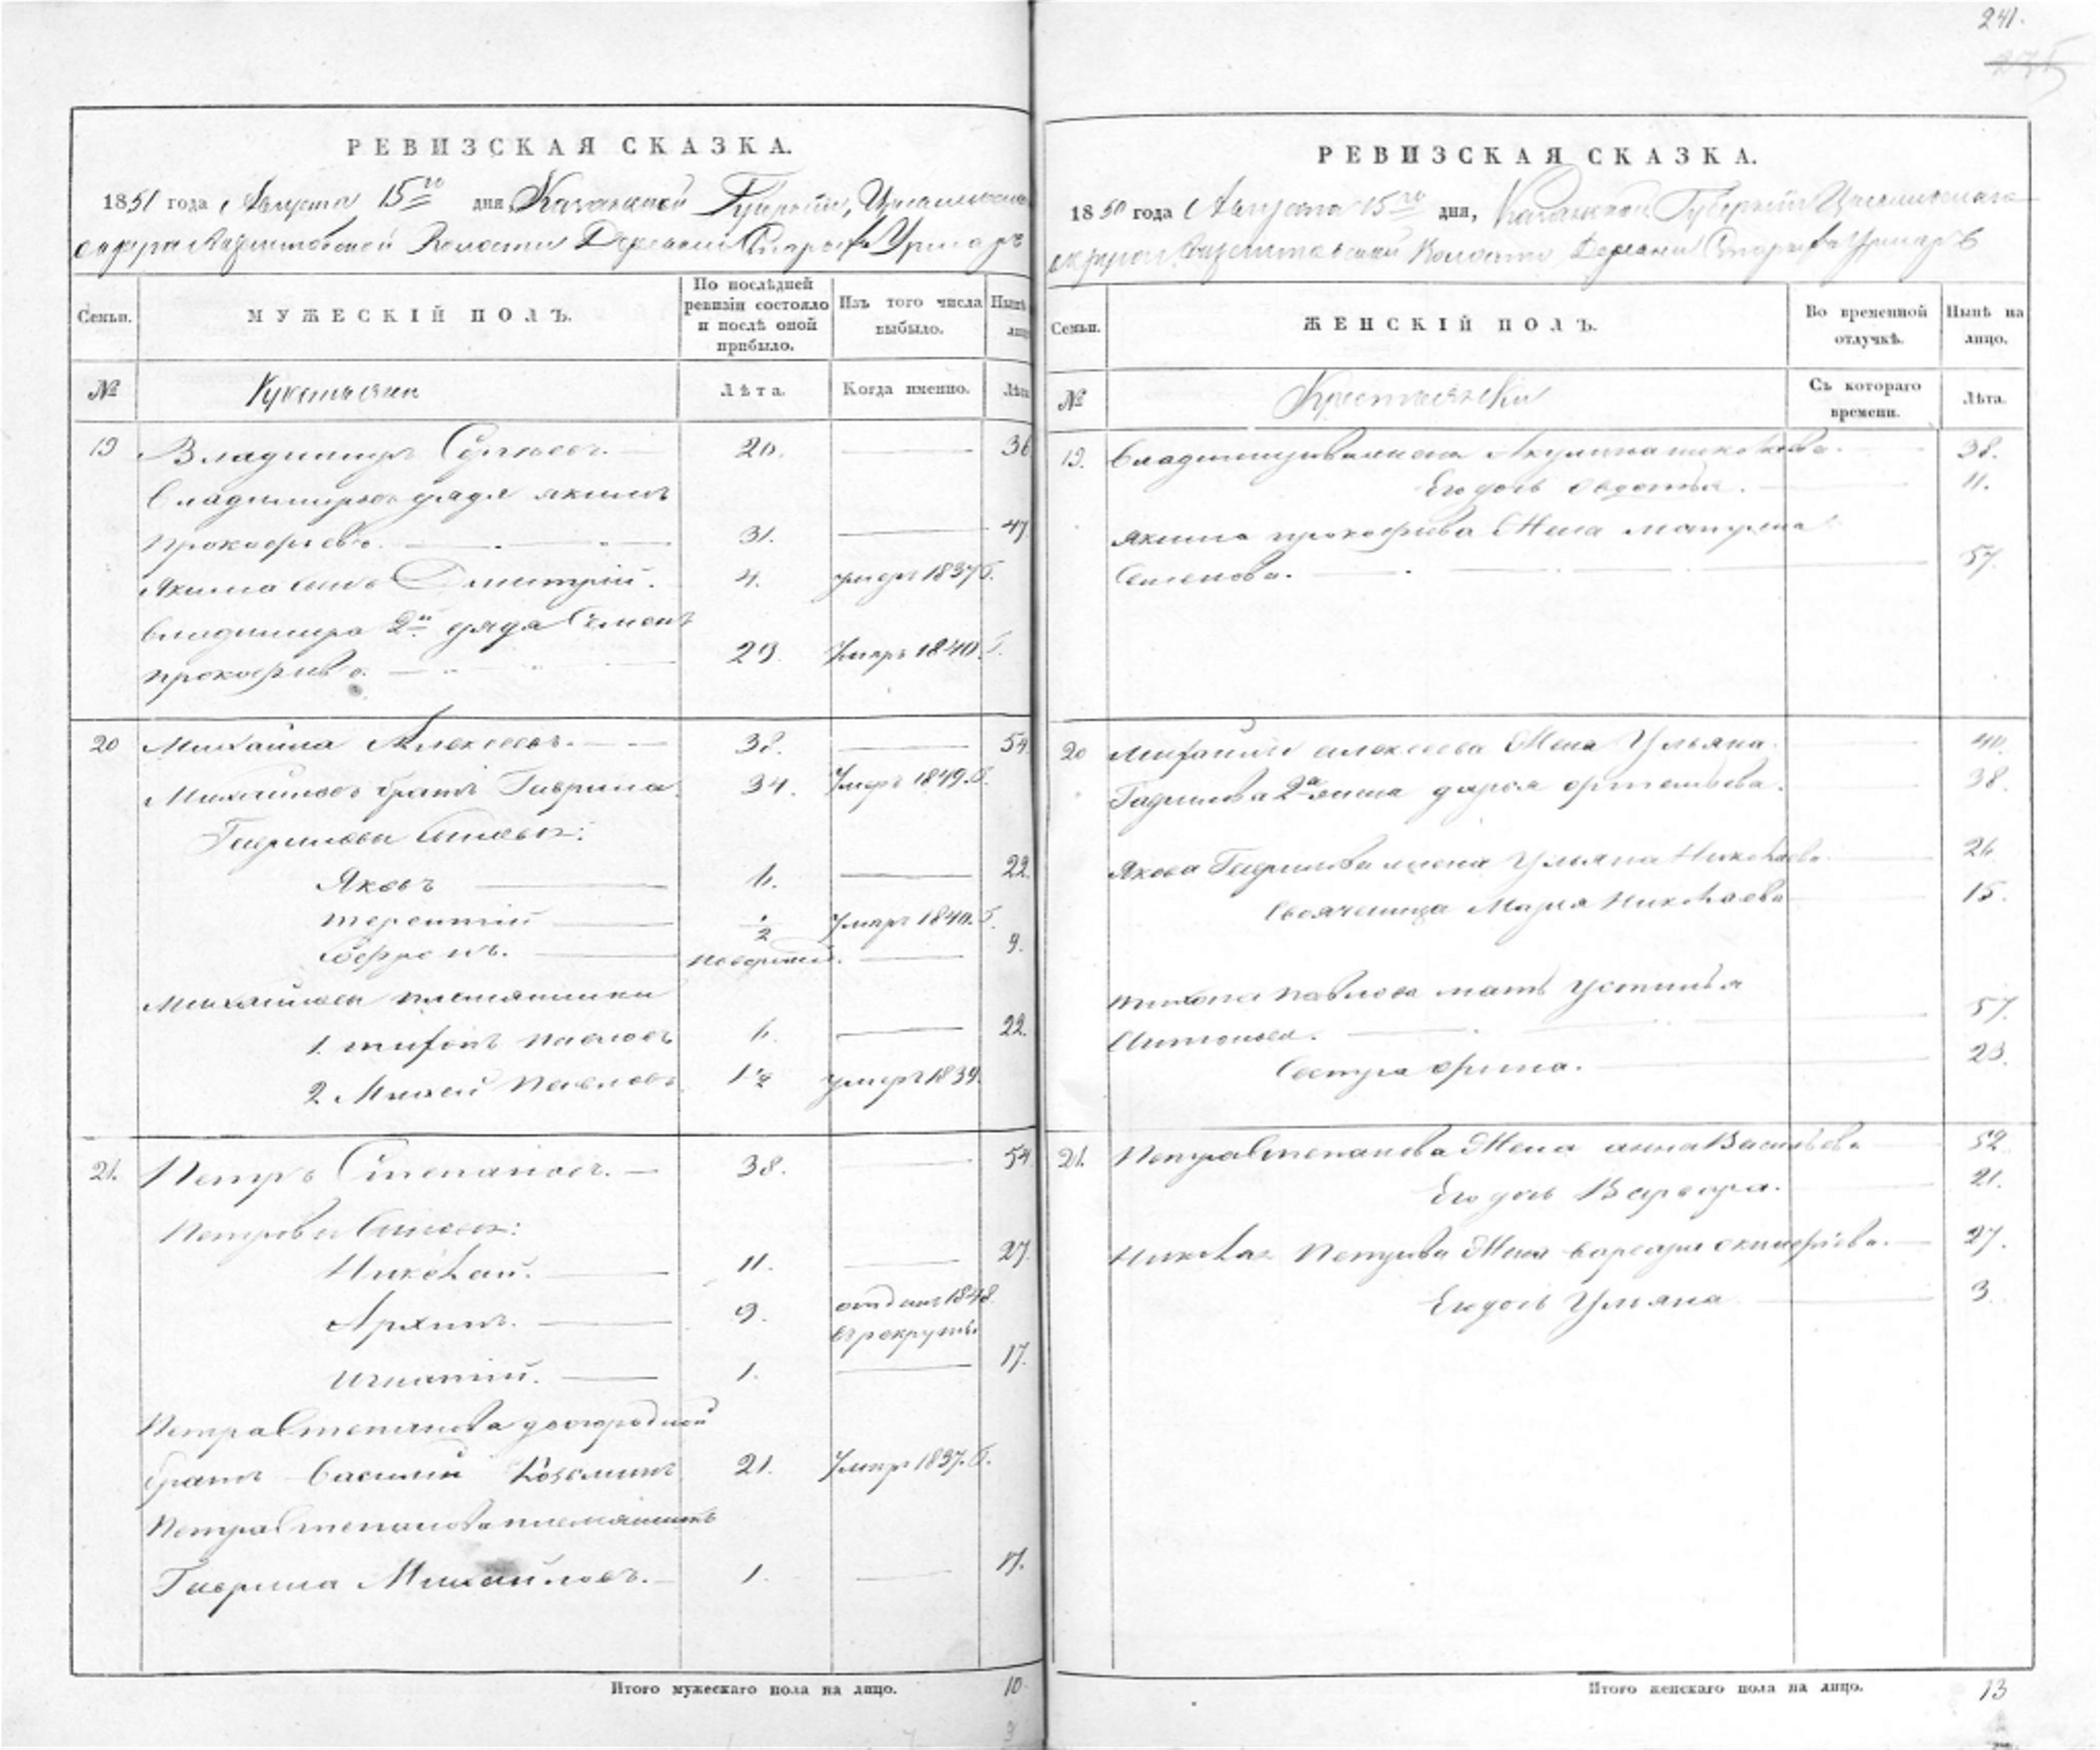 241.
РЕВИЗСКАЯ СКАЗКА.
1851 года Августа 15го дня, Казанской Губернии, Цивильскаго
округа Волости Деревни Старыхъ Урмаръ
Семьи.
МУЖЕСКІЙ ПОЛЪ.
По послѣдней ревизіи состояло и послѣ оной прибыло.
Изъ того числа выбыло.
Нынѣ на лицо
№
Крестьяне
Лѣта.
Когда именно.
Лѣта
19 Владимиръ Сергеевъ. 20. 36
Владимировъ дядя якимъ
Прокофьевъ. 31. 47
Якима сынъ Дмитрій. 4. умеръ 1837 г.
Владимира 2й дядя Семенъ
прокофьевъ. 29. Умеръ 1840. г.
20 Михайла Алексеевъ. 38. 54.
Михайловъ братъ Гаврила. 34. Умеръ 1849. г.
Гавриловы сыновья:
Яковъ 6. 22.
терентий 1/2 Умеръ 1840. г.
Софронъ. новорожд. 9.
Михайловы племянники
1. тихонъ павловъ 6. 22.
2 Михей Павловъ. 1 1/2 умеръ 1839.
21. Петръ Степановъ. 38. 54
Петровы Сыновья:
Николай. 11. 27
Архипъ. 9. отданъ 1848
въ рекруты
игнатий. 1. 17.
Петра Степанова двоюродной
братъ Василий Козминъ 21. Умеръ 1837. г.
Петра Степанова племянникъ
Гаврила Михайловъ. 1. 17.
Итого мужескаго пола на лицо. 10
РЕВИЗСКАЯ СКАЗКА.
1850 года Августа 15го дня, Казанской Губерніи Цивильскаго
округа Волости Деревни Старыхъ Урмаръ
Семьи.
ЖЕНСКІЙ ПОЛЪ.
Во временной отлучкѣ.
Нынѣ на лицо.
№
Крестьянски
Съ котораго времени.
Лѣта.
19. Владимирова жена Акулина николаева. 38.
Его дочь овдотья. 11.
якима прокофьева Жена матрена
Семенова. 57.
20 Михайлы алексеева Жена Ульяна. 40.
Гаврилова 2я жена дарья артемьева. 38.
Якова Гаврилова жена Ульяна Николаева. 26
Своячиница Марья Николаева 15.
тихона павлова мать устинья
Антонова. 57.
Сестра орина. 23.
21. Петра Степанова Жена анна Васильева 52
Его дочь Варвара. 21.
Николая Петрова Жена варвара 27.
Его дочь Ульяна 3
Итого женскаго пола на лицо. 13